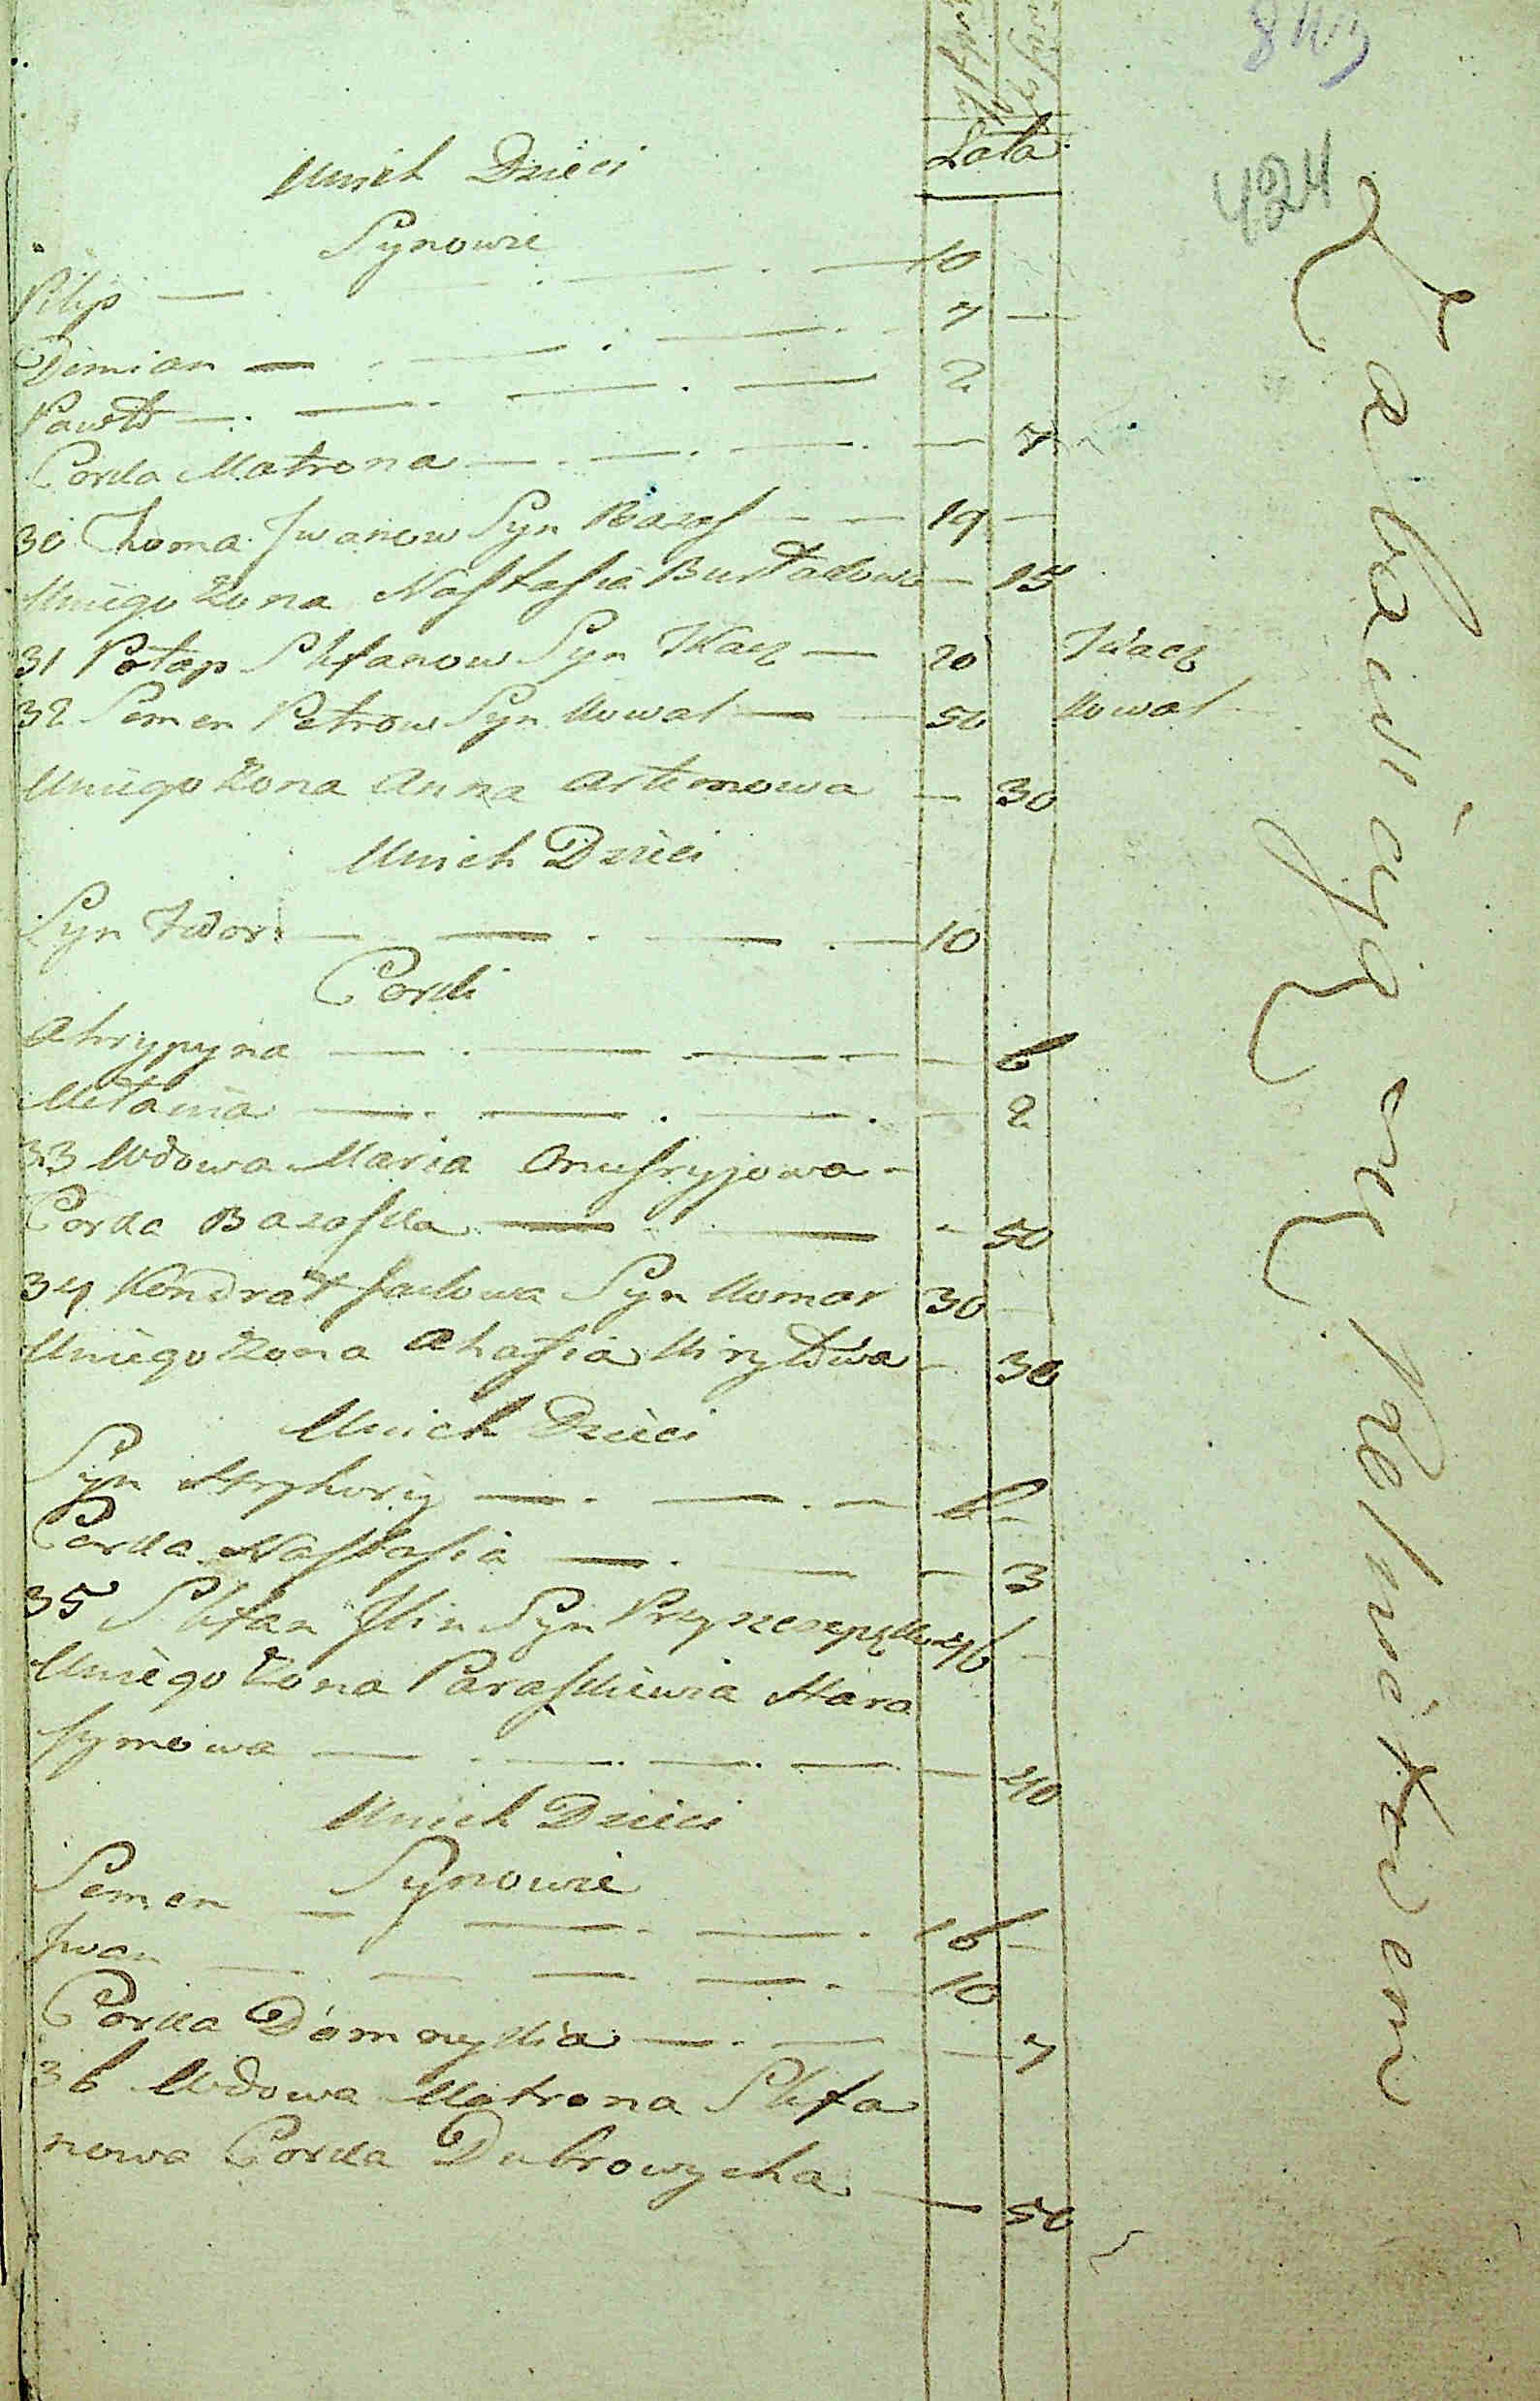 424
Lata
U nich Dzieci
Synowie
Filip — 10
Dimian — 7
Pawło — 2
Corka Matrona — 7
30 Choma Iwanow Syn Bazas — 19
U niego Zona Nastasia Burłakowa — 15
31 Potap Stefanow Syn Tkacz — 20 Tkacz
32 Semen Petrow Syn Kowal — 50 Kowal
U niego Zona Anna Artemowa — 30
U nich Dzieci
Syn Fedor — 10
Corki
Ahrypyna — 6
Mełania — 2
33 Wdowa Maria Onufryjowa
Corka Bazaska — 50
34 Kondrat Syn Komar 30
U niego Zona Ahafia Kiryłowa — 30
U nich Dzieci
Syn Hryhory — 6
Corka Nastasia — 3
35 Stefan Ilin Syn 46
U niego Zona Paraskiewia Hara
symowa — 40
U nich Dzieci
Synowie
Semen — 16
Iwan — 10
Corka Domnykia — 7
36 Wdowa Matrona Stefa
nowa Corka Dubrowycha — 50
Zabawiaią się Rolnictwem